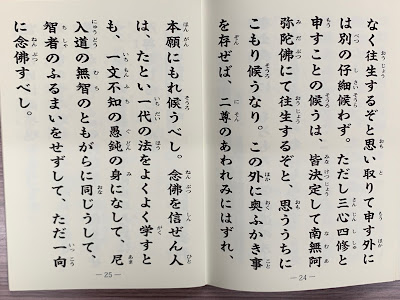 なく往生するぞと思い取りて申す外に
は別の仔細候わず。ただし三心四修と
申すことの候うは、皆決定して南無阿
弥陀佛にて往生するぞと、思ううちに
こもり候うなり。この外に奥ふかき事
を存ぜば、二尊のあわれみにはずれ、
— 24 —
本願にもれ候うべし。念佛を信ぜん人
は、たとい一代の法をよくよく学すと
も、一文不知の愚鈍の身になして、尼
入道の無智のともがらに同じうして、
智者のふるまいをせずして、ただ一向
に念佛すべし。
— 25 —